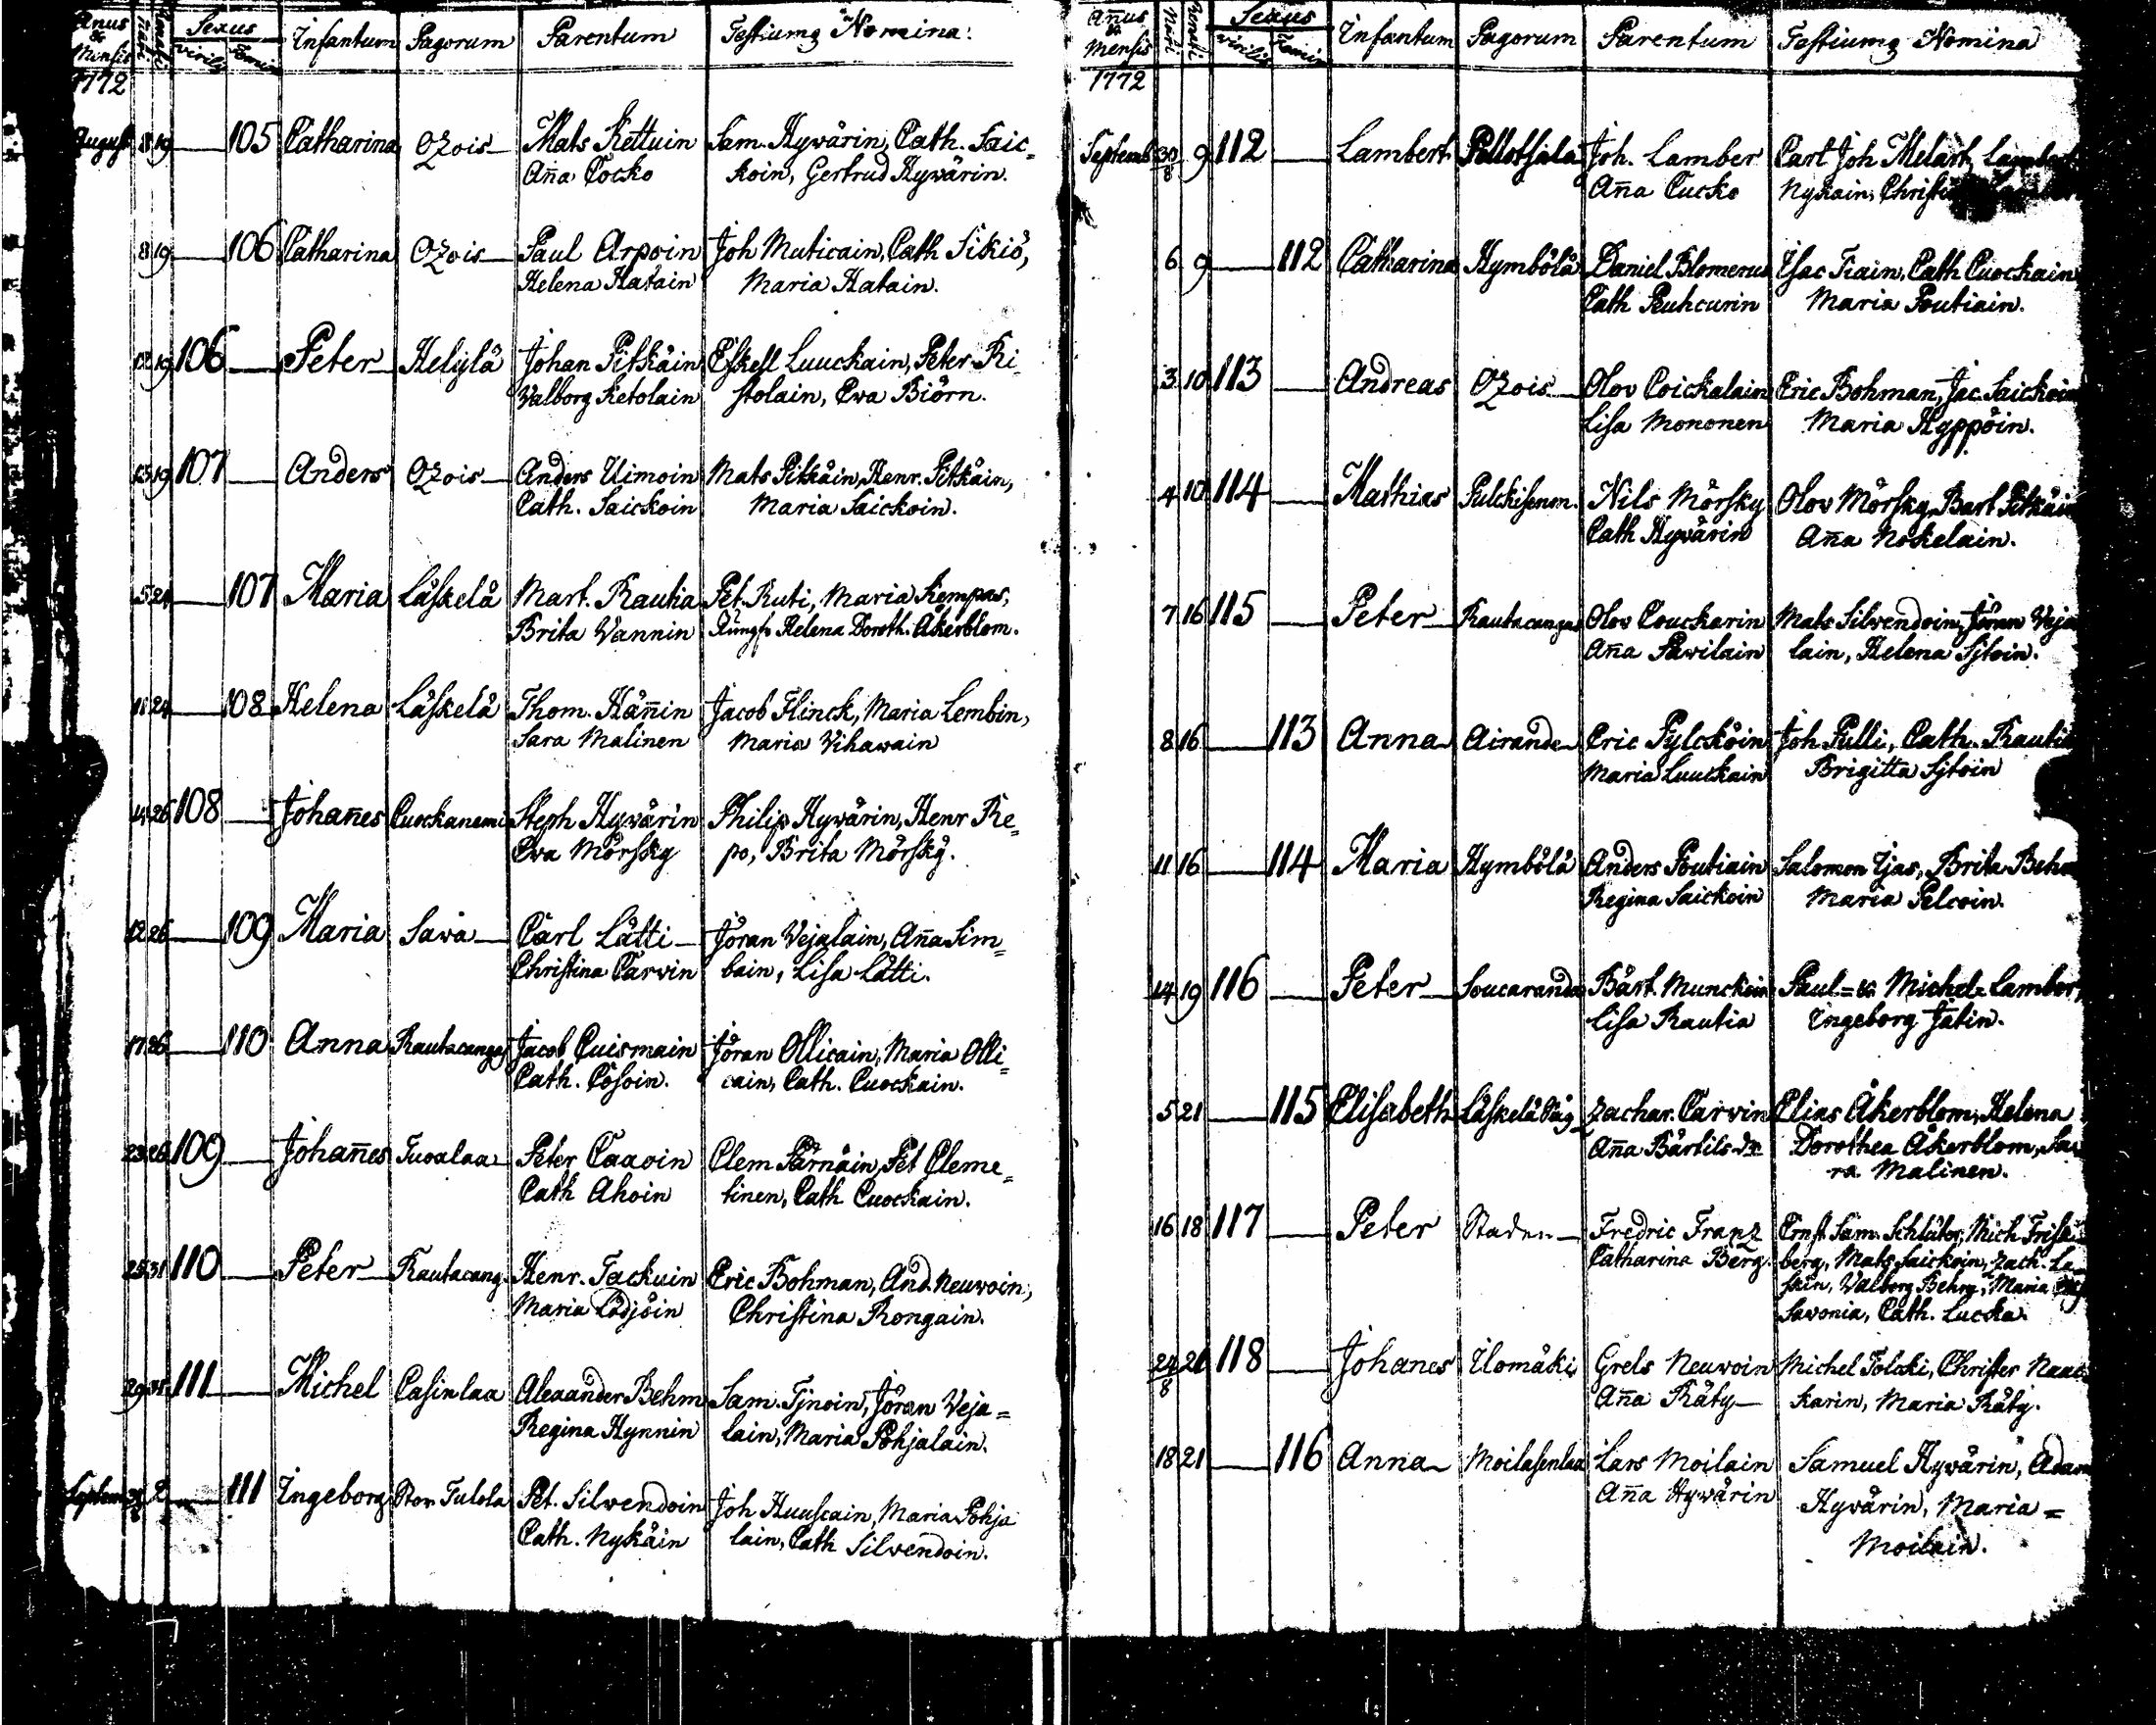 Anus & Mensis Nati Renati Sexus Virilis Femin Infantum Pagorum Parentum Testiumq Nomina.
1772
August 8 19 — 105 Catharina Ozois Mats Kettuin Sam. Hyvärin, Cath. Saic=
Aña Cocko koin, Gertrud Hyvärin.
8 19 — 106 Catharina Ozois Paul Arpoin Joh Muticain, Cath Sikiö,
Helena Hatain Maria Hatain.
12 19 106 — Peter Helylä Johan Pitkäin Eskell Luuckain, Peter Ri=
Valborg Ketolain stolain, Eva Biörn.
13 19 107 — Anders Ozois Anders Uimoin Mats Pitkäin, Henr. Pitkäin,
Cath. Saickoin Maria Saickoin.
5 24 — 107 Maria Läskelä Mart. Rautia Pet. Ruti, Maria Kempas,
Brita Vannin Jungfr Helena Doroth. Åkerblom.
18 24 — 108 Helena Läskelä Thom. Häñin Jacob Flinck, Maria Lembin,
Sara Malinen Maria Vihawain
14 26 108 — Johañes Cuockanemi Steph Hyvärin Philip Hyvärin, Henr Re=
Eva Mörsky po, Brita Mörsky.
12 26 — 109 Maria Sawa Carl Lätti Jöran Vejalain, Aña Sim=
Christina Carvin bain, Lisa Lätti.
17 26 — 110 Anna Rautacangas Jacob Cuismain Jöran Ollicain, Maria Olli=
Cath. Cosoin. cain, Cath. Cuockain.
23 26 109 — Johañes Tuoslaa Peter Caaoin Clem Pärnäin, Pet Cleme=
Cath Ahoin tinen, Cath Cuockain.
25 31 110 — Peter Rautacang. Henr. Tackuin Eric Bohman, And. Neuvoin,
Maria Lodjöin Christina Rongain.
29 31 111 — Michel Casinlaa Alexander Behm Sam. Tjnoin, Jöran Veja=
Regina Hynnin lain, Maria Pohjalain.
Septem 2 — 111 Ingeborg Stor Tulola Pet. Silvendoin Joh Huuscain, Maria Pohja
Cath. Nykäin lain, Cath Silvendoin.
Añus & Mensis Nati Renati Sexus Virilis Femin Infantum Pagorum Parentum Testiumq Nomina
1772
Septemb 30/8 9 112 — Lambert Pellotsala Joh. Lamber Carl Joh Melart, Lambert
Aña Cucko Nykäin,
6 9 — 112 Catharina Hymbölä Daniel Blomerus Isac Tiain, Cath Cuockain
Cath Peuhcurin Maria Poutiain.
3 10 113 — Andreas Ozois Olov Coickalain Eric Bohman, Jac. Saickoin
Lisa Mononen Maria Hyppöin.
4 10 114 — Mathias Pulckisenm. Nils Mörsky Olov Mörsky, Bart Pitkäin
Cath Hyvärin Aña Nokelain.
7 16 115 — Peter Rautacangas Olov Couckarin Mats Silvendoin, Jöran Veja
Aña Pawilain lain, Helena Sjtoin.
8 16 — 113 Anna Airanda Eric Pylcköin Joh. Pulli, Cath. Rautia
Maria Luuckain Brigitta Sjtoin
11 16 — 114 Maria Hymbölä Anders Poutiain Salomon Ijas, Brita Behm
Regina Saickoin Maria Pelcoin.
14 19 116 — Peter Soucaranda Bärt. Munckoin Paul = & Michel = Lamber,
Lisa Rautia Ingeborg Jätin.
5 21 — 115 Elisabeth Läskelä Såg Zachar. Carvin Elias Åkerblom, Helena
Aña Bärtils dr Dorothea Åkerblom, Sa=
ra Malinen.
16 18 117 — Peter Staden Fredric Franz Ernst Sam. Schlüter, Mich Frisk
Catharina Berg. berg, Mats Saickoin, Zach. La
skin, Valborg Behm, Maria
Savonia, Cath. Lucka.
24/8 21 118 — Johanes Ilomäki Grels Neuvoin Michel Tolcki, Christer Naac
Aña Räty karin, Maria Räty.
18 21 — 116 Anna Moilasenlaa Lars Moilain Samuel Hyvärin, Adam
Aña Hyvärin Hyvärin, Maria =
Moilain.